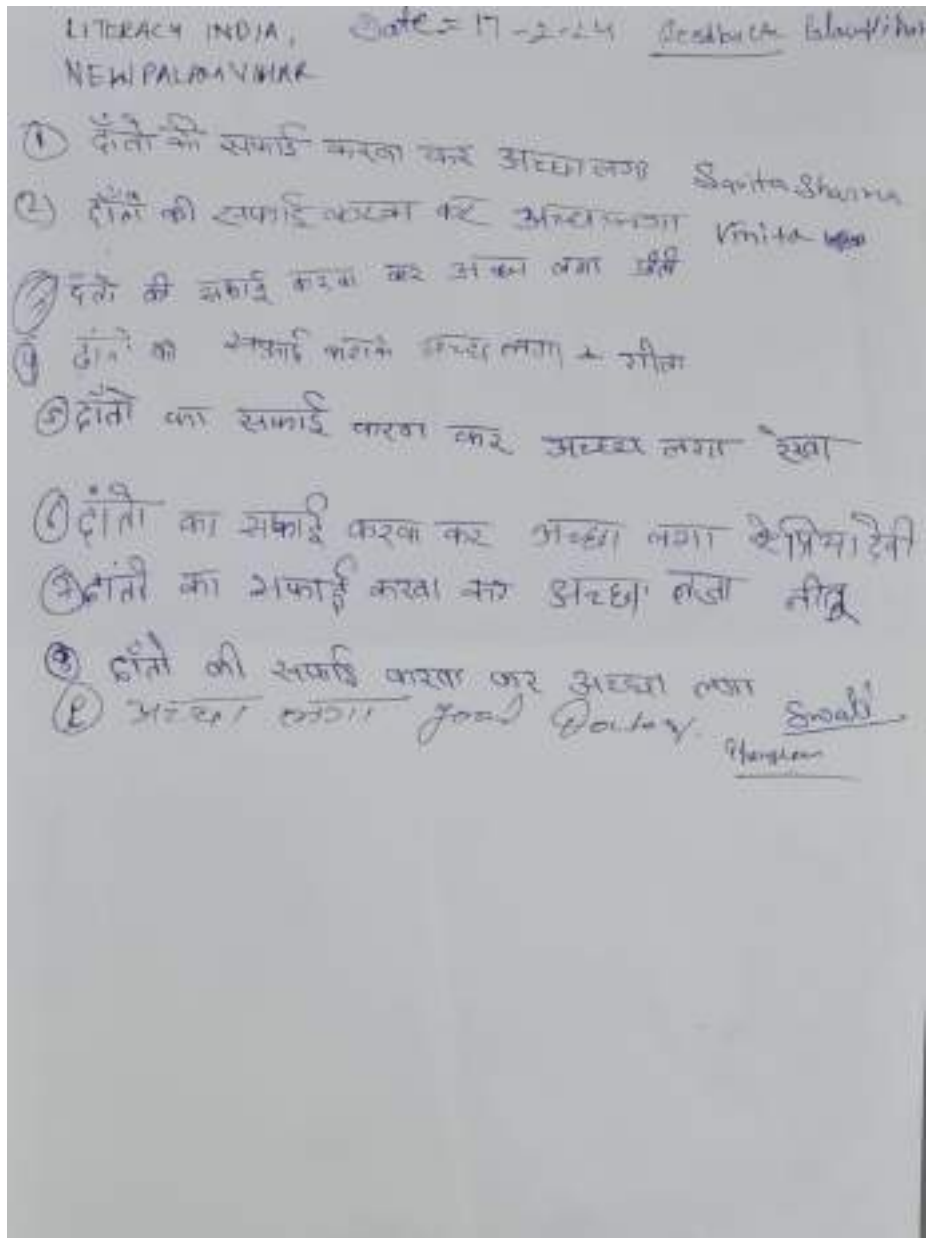 LITERACY INDIA, Date = 17-2-24 Feedback
NEW PALAM VIHAR
① दाँतो की सफाई करवा कर अच्छा लगा Savita Sharma
② दाँतो की सफाई करवा कर अच्छा लगा Vinita
③ दंतो की सफाई करवा कर अच्छा लगा प्रीती
④ दांतो की सफाई कराके अच्छा लगा गीता
⑤ दाँतो का सफाई करवा कर अच्छा लगा रेखा
⑥ दांतो का सफाई करवा कर अच्छा लगा प्रिया देवी
⑦ दांतो का सफाई करवा कर अच्छा लगा नीतू
⑧ दाँतो की सफाई करवा कर अच्छा लगा Swati
अच्छा लगा good Doctor.